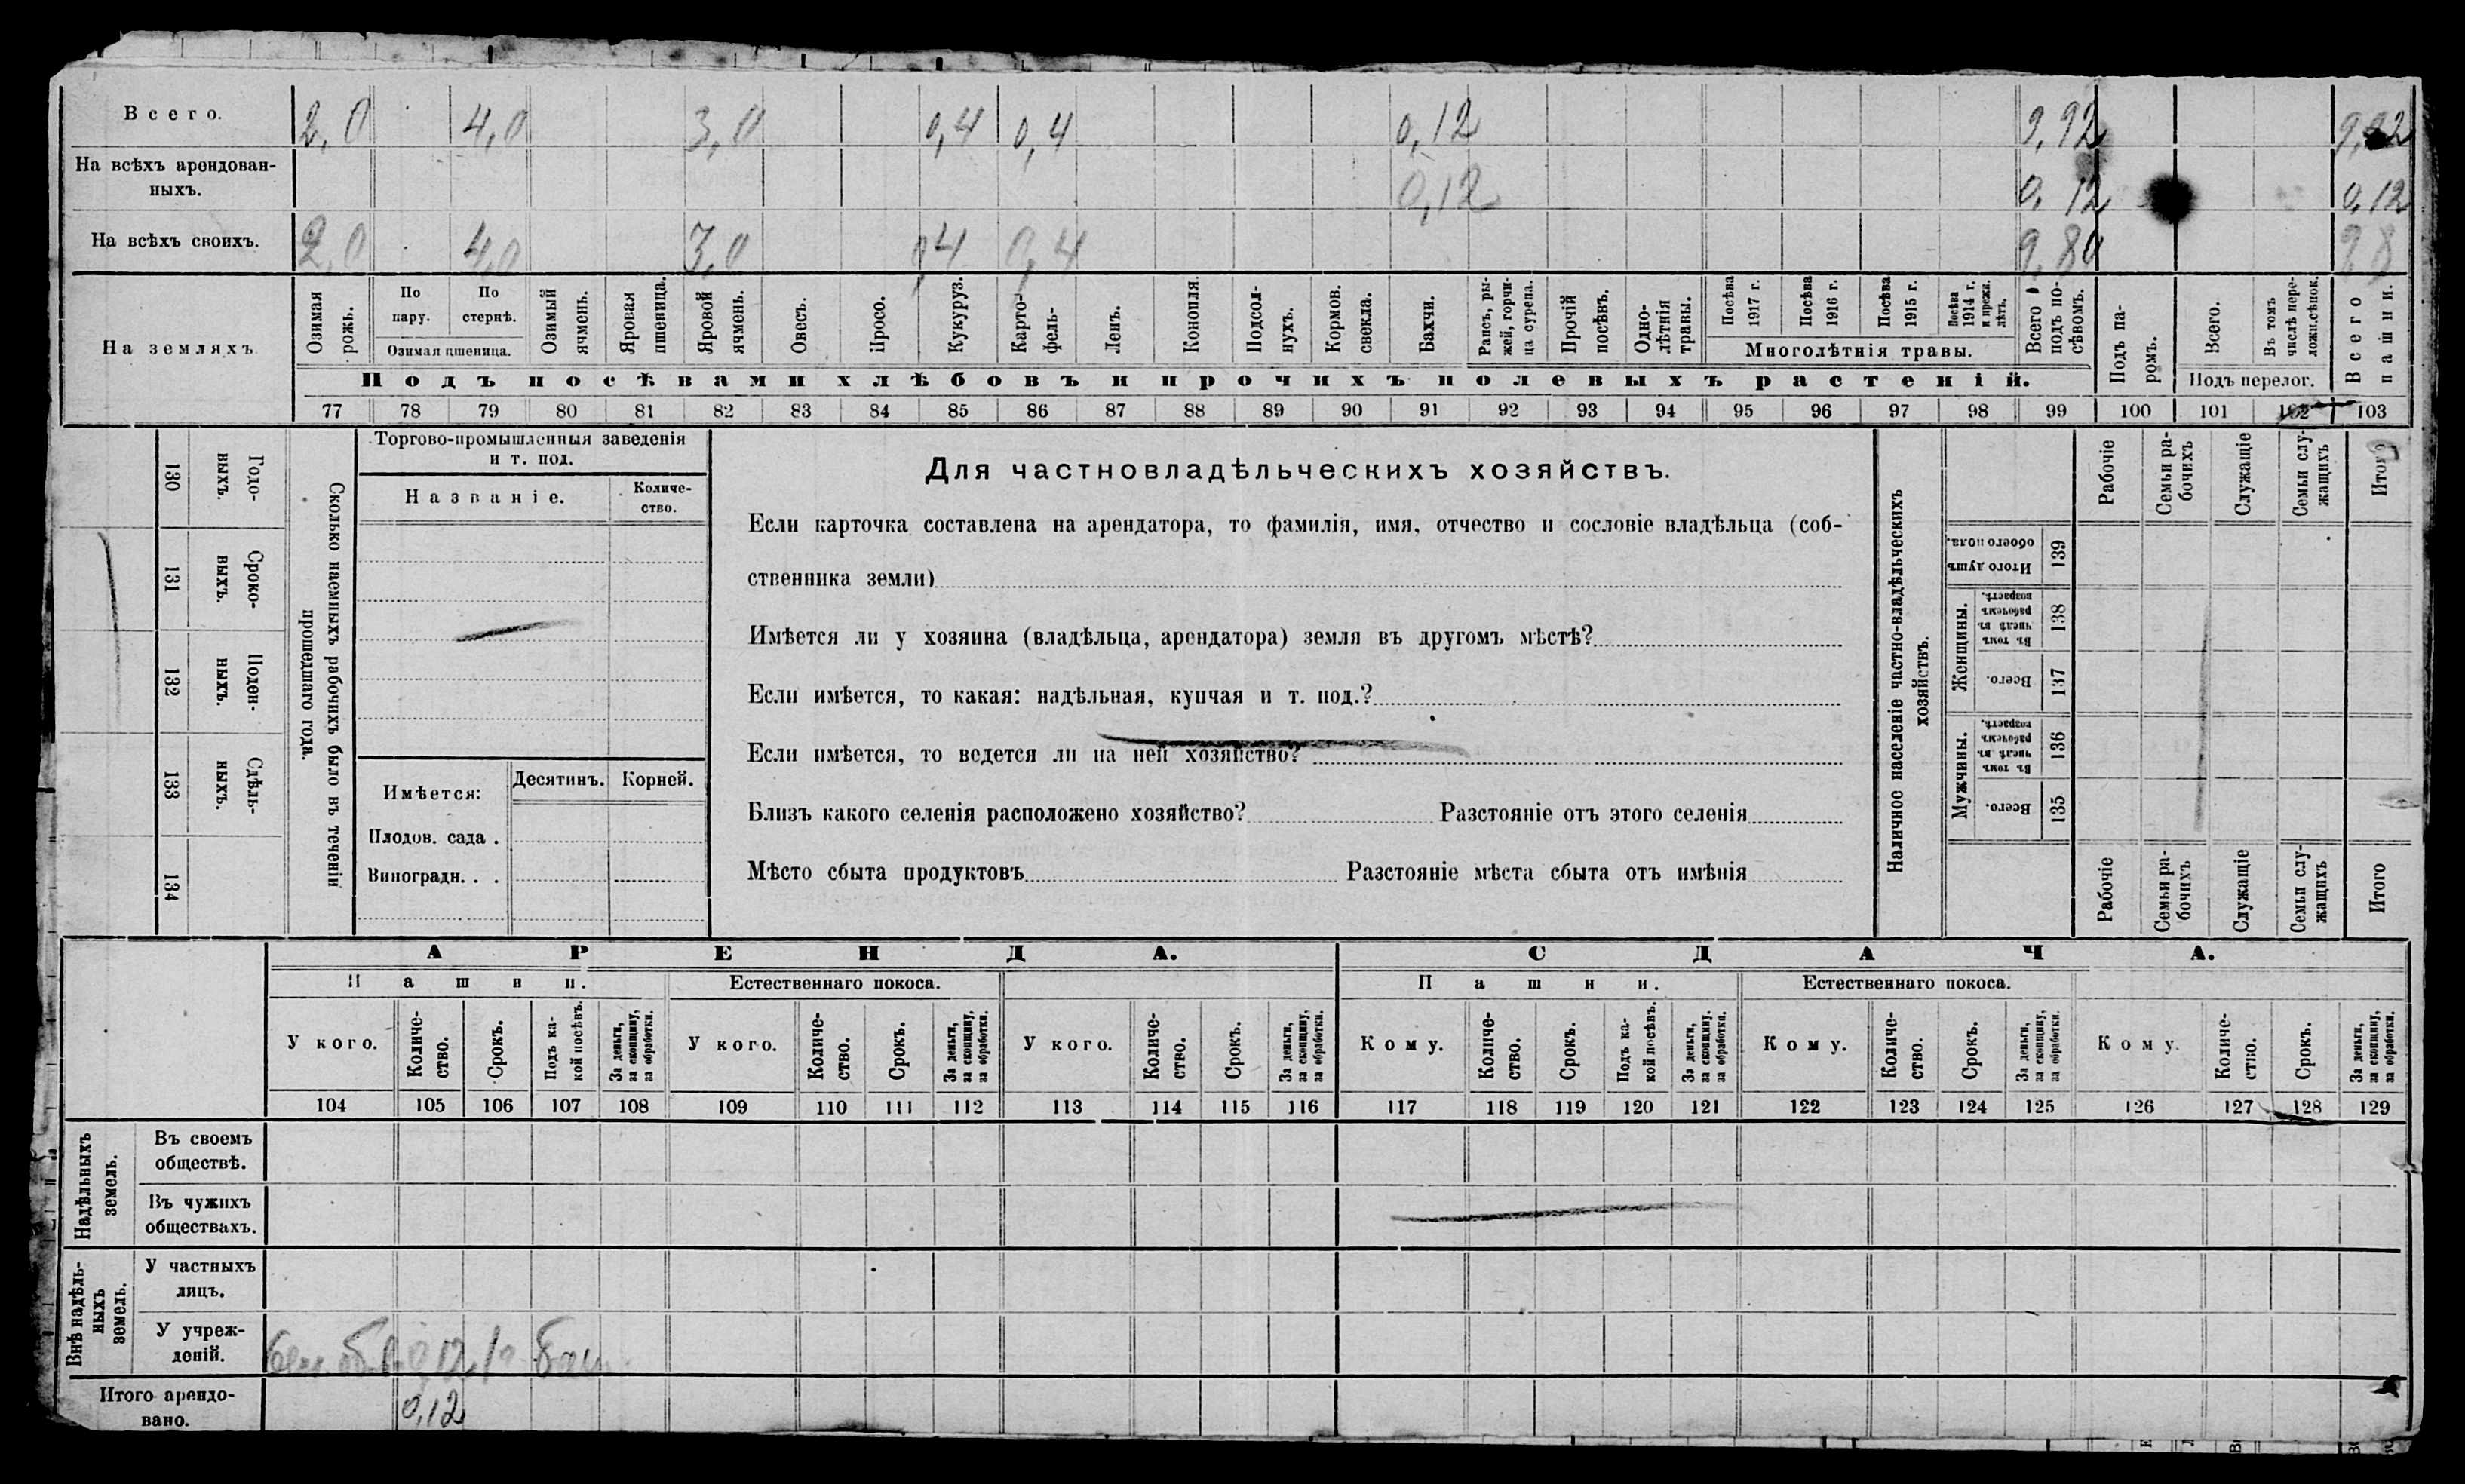 Всего. 2,0 4,0 3,0 0,4 0,4 0,12 9,92 9,92
На всѣхъ арендован-
ныхъ. 0,12 0,12 0,12
На всѣхъ своихъ. 2,0 4,0 3,0 0,4 0,4 9,80 9,8
На земляхъ
Озимая рожь.
По пару.
По стернѣ.
Озимая пшеница.
Озимый ячмень.
Яровая пшеница.
Яровой ячмень.
Овесъ.
Просо.
Кукуруз.
Карто-
фель.
Ленъ.
Конопля.
Подсол-
нухъ.
Кормов. свекла.
Бахчи.
Рапсъ, ры-
жей, горчи-
ца сурепа.
Прочій посѣвъ.
Одно-
лѣтнія травы.
Посѣва 1917 г.
Посѣва 1916 г.
Посѣва 1915 г.
Посѣва 1914 г. и прежн. лѣтъ.
Многолѣтнія травы.
Всего подъ по-
сѣвомъ.
Подъ посѣвами хлѣбовъ и прочихъ полевыхъ растеній.
Подъ па-
ромъ.
Всего.
Въ томъ числѣ пере-
ложн.сѣнок.
Подъ перелог.
Всего пашни.
77 78 79 80 81 82 83 84 85 86 87 88 89 90 91 92 93 94 95 96 97 98 99 100 101 102 103
130 Годо-
выхъ.
131 Сроко-
выхъ.
132 Поден-
ныхъ.
133 Сдѣль-
ныхъ.
134
Сколько наемныхъ рабочихъ было въ теченіи
прошедшаго года.
Торгово-промышленныя заведенія
и т. под.
Названіе.
Количе-
ство.
Имѣется:
Десятинъ. Корней.
Плодов. сада .
Виноградн. . .
Для частновладѣльческихъ хозяйствъ.
Если карточка составлена на арендатора, то фамилія, имя, отчество и сословіе владѣльца (соб-
ственника земли)
Имѣется ли у хозяина (владѣльца, арендатора) земля въ другомъ мѣстѣ?
Если имѣется, то какая: надѣльная, купчая и т. под.?
Если имѣется, то ведется ли на ней хозяйство?
Близъ какого селенія расположено хозяйство? Разстояніе отъ этого селенія
Мѣсто сбыта продуктовъ Разстояніе мѣста сбыта отъ имѣнія
Наличное населеніе частно-владѣльческихъ
хозяйствъ.
Рабочіе
Семьи ра-
бочихъ
Служащіе
Семьи слу-
жащихъ
Итого
Итого душъ обоего пола. 139
Женщины.
Въ томъ числѣ въ рабочемъ возрастѣ. 138
Всего. 137
Мужчины.
Въ томъ числѣ въ рабочемъ возрастѣ. 136
Всего. 135
Рабочіе
Семьи ра-
бочихъ
Служащіе
Семьи слу-
жащихъ
Итого
АРЕНДА. СДАЧА.
Пашни. Естественнаго покоса. Пашни. Естественнаго покоса.
У кого.
Количе-
ство.
Срокъ.
Подъ ка-
кой посѣвъ.
За деньги,
за скопщину,
за обработки.
У кого.
Количе-
ство.
Срокъ.
За деньги,
за скопщину,
за обработки.
У кого.
Количе-
ство.
Срокъ.
За деньги,
за скопщину,
за обработки.
Кому.
Количе-
ство.
Срокъ.
Подъ ка-
кой посѣвъ.
За деньги,
за скопщину,
за обработки.
Кому.
Количе-
ство.
Срокъ.
За деньги,
за скопщину,
за обработки.
Кому.
Количе-
ство.
Срокъ.
За деньги,
за скопщину,
за обработки.
104 105 106 107 108 109 110 111 112 113 114 115 116 117 118 119 120 121 122 123 124 125 126 127 128 129
Надѣльныхъ
земель.
Въ своемъ
обществѣ.
Въ чужихъ
обществахъ.
Внѣ надѣль-
ныхъ
земель.
У частныхъ
лицъ.
У учреж-
деній. 0,12
Итого арендо-
вано. 0,12